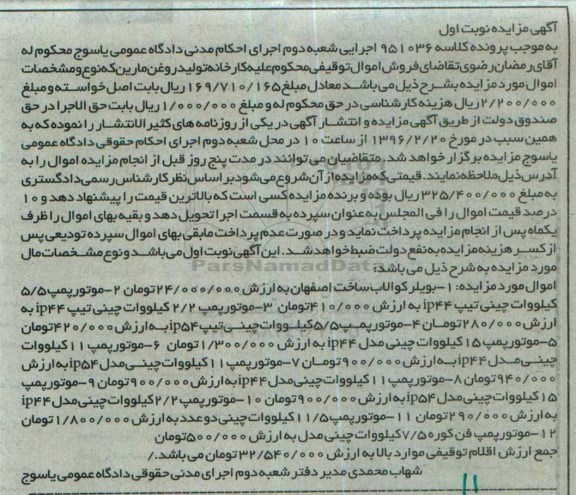 آگهی مزایده نوبت اول
به موجب پرونده کلاسه ۹۵۱۰۳۶ اجرایی شعبه دوم اجرای احکام مدنی دادگاه عمومی یاسوج محکوم له
آقای رمضان رضوی تقاضای فروش اموال توقیفی محکوم علیه کارخانه تولید روغن مارین که نوع و مشخصات
اموال مورد مزایده بشرح ذیل می باشد معادل مبلغ ۱۶۹/۷۱۰/۱۶۵ ریال بابت اصل خواسته و مبلغ
۲/۲۰۰/۰۰۰ ریال هزینه کارشناسی در حق محکوم له و مبلغ ۱/۰۰۰/۰۰۰ ریال بابت حق الاجرا در حق
صندوق دولت از طریق آگهی مزایده و انتشار آگهی در یکی از روزنامه های کثیر الانتشار را نموده که به
همین سبب در مورخ ۱۳۹۶/۲/۲۰ از ساعت ۱۰ در محل شعبه دوم اجرای احکام حقوقی دادگاه عمومی
یاسوج مزایده برگزار خواهد شد. متقاضیان می توانند در مدت پنج روز قبل از انجام مزایده اموال را به
آدرس ذیل ملاحظه نمایند. قیمتی که مزایده از آن شروع می شود بر اساس نظر کارشناس رسمی دادگستری
به مبلغ ۳۲۵/۴۰۰/۰۰۰ ریال بوده و برنده مزایده کسی است که بالاترین قیمت را پیشنهاد دهد و ۱۰
درصد قیمت اموال را فی المجلس به عنوان سپرده به قسمت اجرا تحویل دهد و بقیه بهای اموال را ظرف
یکماه پس از انجام مزایده پرداخت نماید و در صورت عدم پرداخت مابقی بهای اموال سپرده تودیعی پس
از کسر هزینه مزایده به نفع دولت ضبط خواهد شد. این آگهی نوبت اول می باشد و نوع مشخصات مال
مورد مزایده به شرح ذیل می باشد:
ParsNamadData
اموال مورد مزایده: ۱-بویلر کوالاب ساخت اصفهان به ارزش ۲۴/۰۰۰/۰۰۰ تومان ۲-موتورپمپ ۵/۵
کیلووات چینی تیپ ip۴۴ به ارزش ۴۱۰/۰۰۰ تومان ۳-موتورپمپ ۲/۲ کیلووات چینی تیپ ip۴۴ به
ارزش ۲۸۰/۰۰۰ تومان ۴-موتورپمپ ۵/۵ کیلووات چینی تیپ ip۵۴ به ارزش ۴۲۰/۰۰۰ تومان
۵-موتورپمپ ۱۵ کیلووات چینی مدل ip۴۴ به ارزش ۱/۳۰۰/۰۰۰ تومان ۶-موتور پمپ ۱۱ کیلووات
چینی مدل ip۴۴ به ارزش ۹۰۰/۰۰۰ تومان ۷-موتورپمپ ۱۱ کیلووات چینی مدل ip۵۴ به ارزش
۹۴۰/۰۰۰ تومان ۸-موتورپمپ ۱۱ کیلووات چینی مدل ip۴۴ به ارزش ۹۰۰/۰۰۰ تومان ۹-موتورپمپ
۱۵ کیلووات چینی مدل ip۵۴ به ارزش ۹۰۰/۰۰۰ تومان ۱۰-موتورپمپ ۲/۲ کیلووات چینی مدل ip۴۴
به ارزش ۲۹۰/۰۰۰ تومان ۱۱-موتورپمپ ۱۱/۵ کیلووات چینی دو عدد به ارزش ۱/۸۰۰/۰۰۰ تومان
۱۲-موتورپمپ فن کوره ۷/۵ کیلووات چینی مدل به ارزش ۵۰۰/۰۰۰ تومان
جمع ارزش اقلام توقیفی موارد بالا به ارزش ۳۲/۵۴۰/۰۰۰ تومان می باشد./
شهاب محمدی مدیر دفتر شعبه دوم اجرای مدنی حقوقی دادگاه عمومی یاسوج